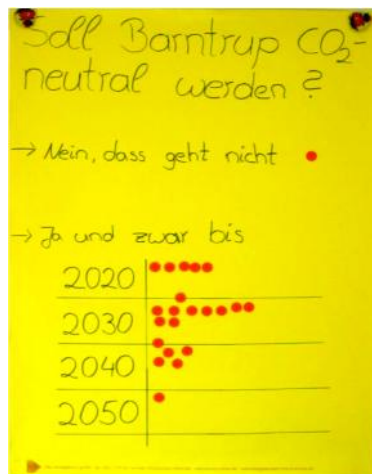 Soll Barntrup CO₂-
neutral werden?
→ Nein, dass geht nicht
→ Ja und zwar bis
2020
2030
2040
2050